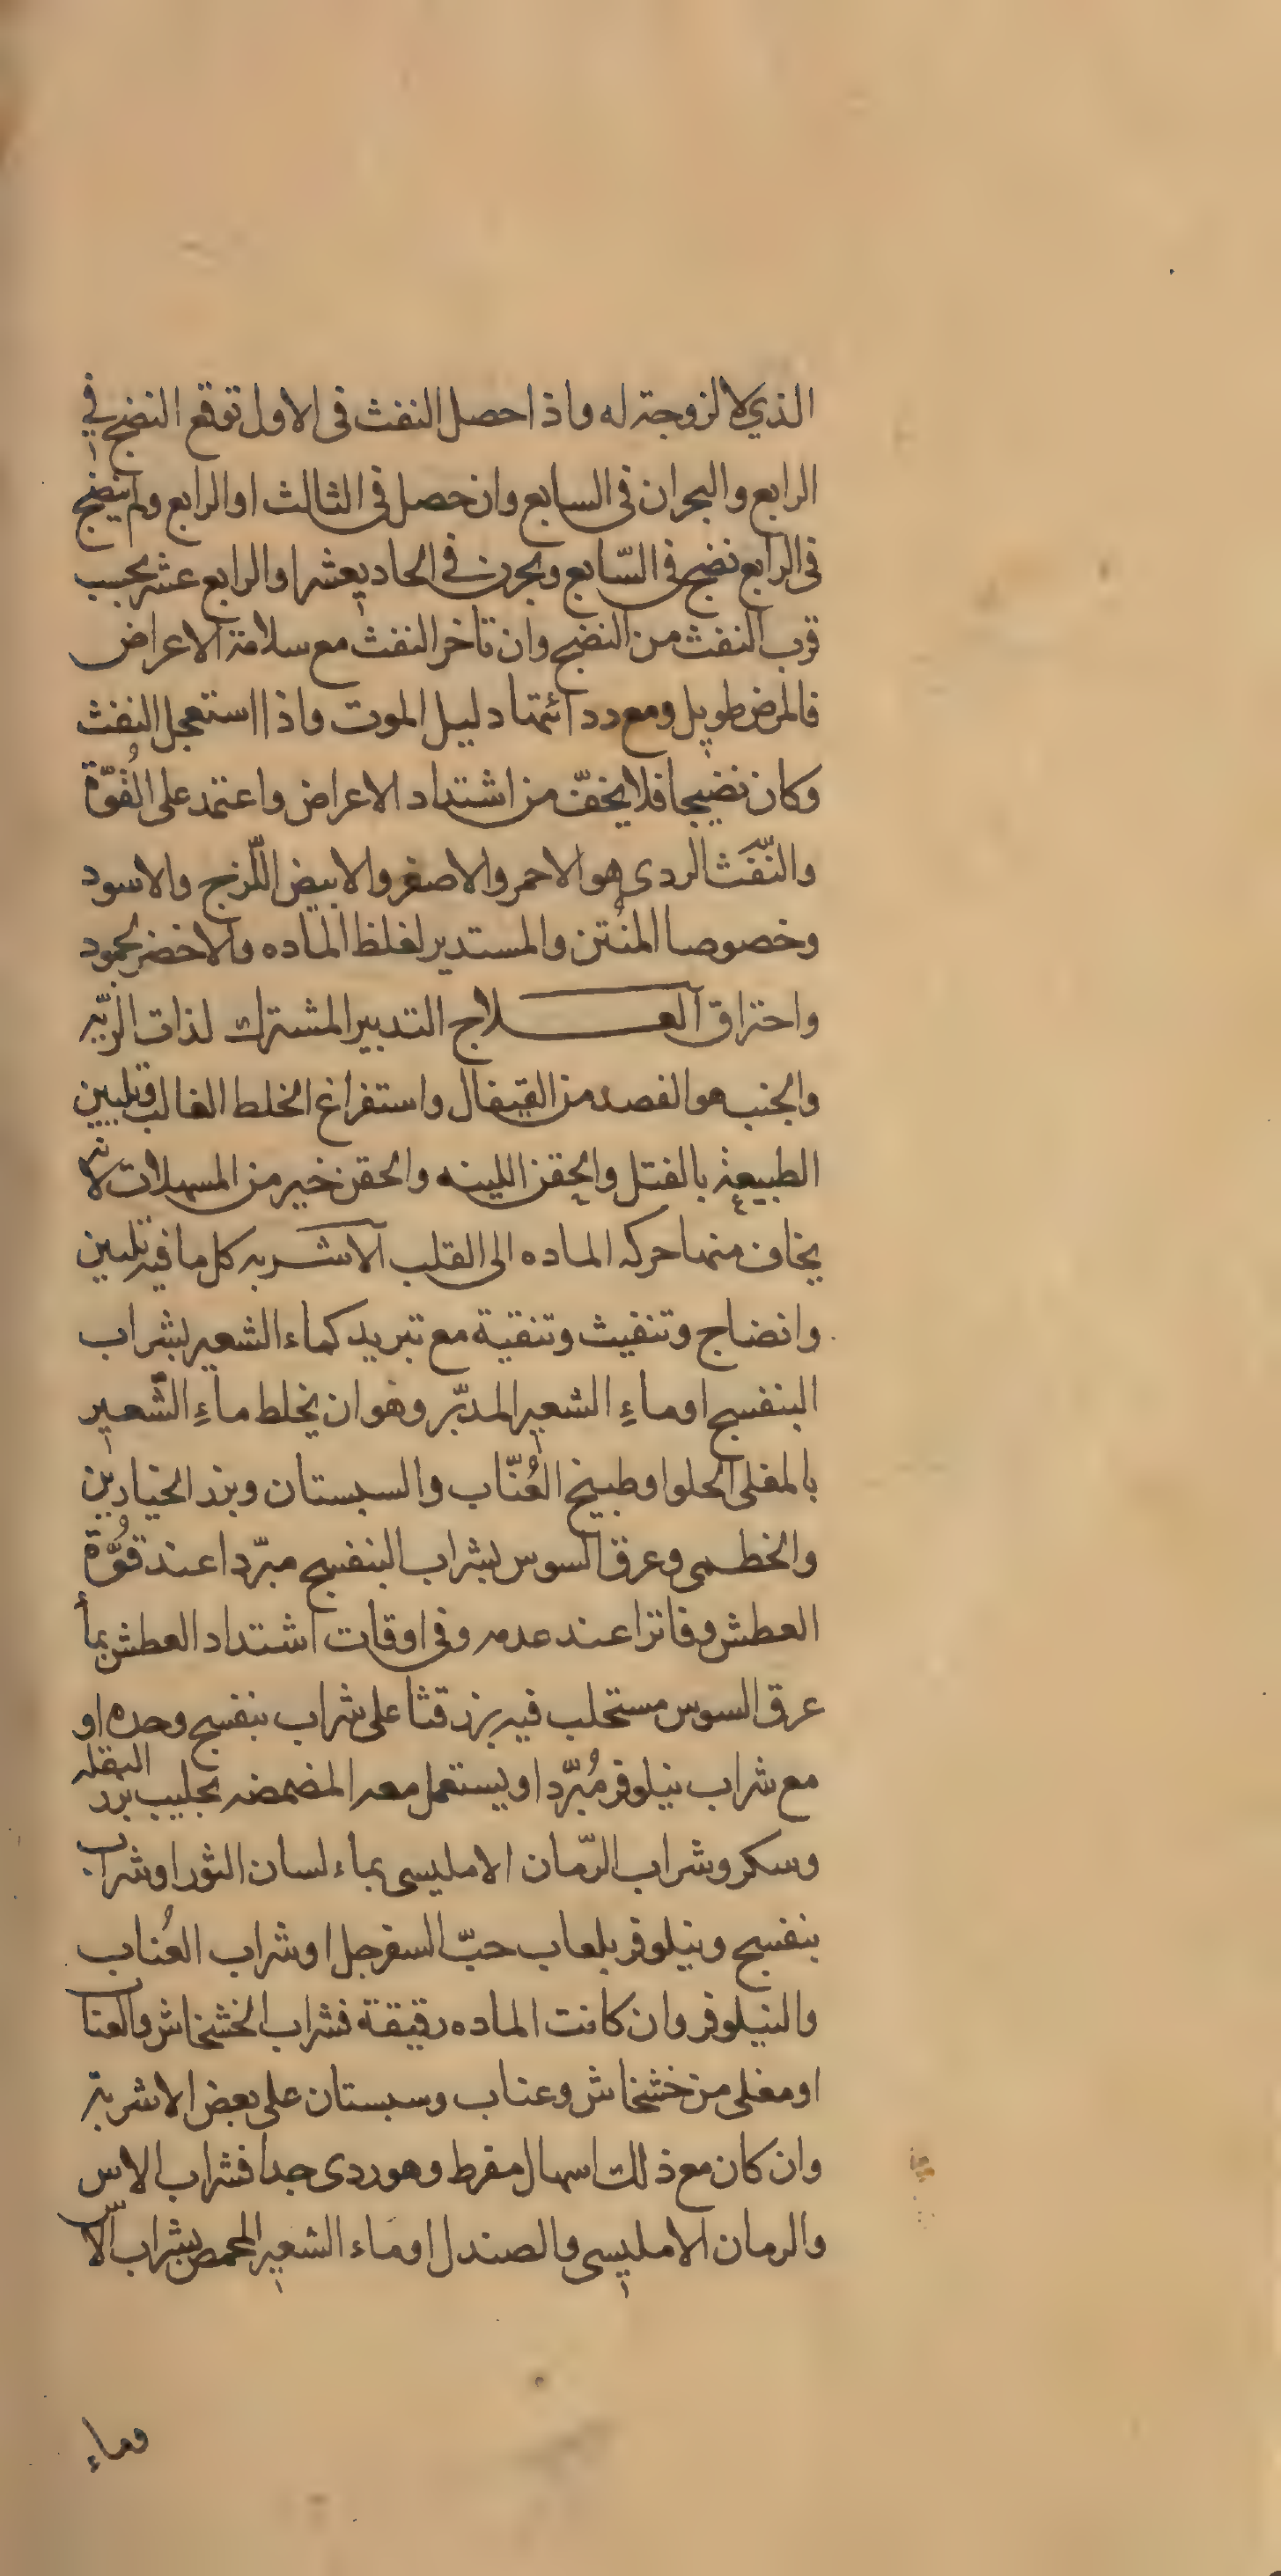 الذي لا لزوجته له واذا حصل النفث فى الاول توقع النضج في
الرابع والبحران فى السابع وان حصل فى الثالث او الرابع ولم ينضج
فى الرابع نضج فى السّابع وبحرن في الحادي عشر او الرابع عشر بحسب
قرب النفث من النضج وان تاخر النفث مع سلامة الاعراض
فالمرض طويل ومع ردائتها دليل الموت واذا استعجل النفث
وكان نضيجا فلا يخفّ من اشتداد الاعراض واعتمد على القُوّة
والنّفَث الردى هو الاحمر والاصفر والابيض اللّزج والاسود
وخصوصا المنُتن والمستدير لغلظ الماده والاخضر لجمود
واحتراق العلاج التدبير المشترك لذات الريّه
والجنب هو الفصد من القيفال واستفراغ الخلط الغالب وتليين
الطبيعة بالفتل والحقن اللينه والحقن خير من المسهلات لانه
يخاف منها حركه الماده الى القلب الاشربه كل ما فيه تليين
وانضاج وتنفيث وتنقية مع تبريد كماء الشعير بشراب
البنفسج او ماءِ الشعير المدبّر وهو ان يخلط ماءِ الشّعير
بالمغلى الحلو او طبيخ العُنّاب والسبستان وبزر الخيارين
والخطمى وعرق السوس بشراب البنفسج مبرّدا عند قوُّة
العطش وفاترا عند عدمه وفى اوقات اشتداد العطش بمأ
عرق السوس مستحلب فيه بزر قثا على شراب بنفسج وحده او
مع شراب نيلوفر مُبرّدا ويستعمل معه المضمضه بحليب بزر البقله
وسكر وشراب الرّمان الامليسى بماء لسان الثور او شراب
بنفسج ونيلوفر بلعاب حبّ السفرجل او شراب العُناب
والنيلوفر وان كانت الماده رقيقة فشراب الخشخاش والعناب
او مغلى من خشخاش وعناب وسبستان على بعض الاشربة
وان كان مع ذلك اسهال مفرط وهو ردى جدا فشراب الاس
والرمان الامليسى والصندل او ماء الشعير المحمص بشراب الآس
وماء